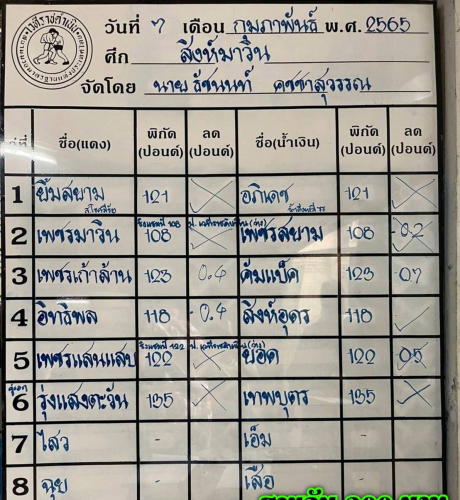 วันที่ 7 เดือน กุมภาพันธ์ พ.ศ. 2565
ศึก สิงห์มาวิน
จัดโดย นาย ธัชนนท์ คชชาสุวรรณ
คู่ที่ ชื่อ(แดง) พิกัด (ปอนด์) ลด (ปอนด์) ชื่อ(น้ำเงิน) พิกัด (ปอนด์) ลด (ปอนด์)
1 ยิ้มสยาม 121 อภิเดช 121
2 เพชรมาวิน 108 เพชรสยาม 108 -0.2
3 เพชรเก้าล้าน 123 0.4 คัมแบ็ค 123 -07
4 อิทธิพล 118 -0.4 สิงห์อุดร 118
5 เพชรแสนแสบ 122 ยอด 122 05
คู่เอก
6 รุ่งแสงตะวัน 135 เทพบุตร 135
7 ไสว - เอ็ม -
8 ฉุย - เสือ -